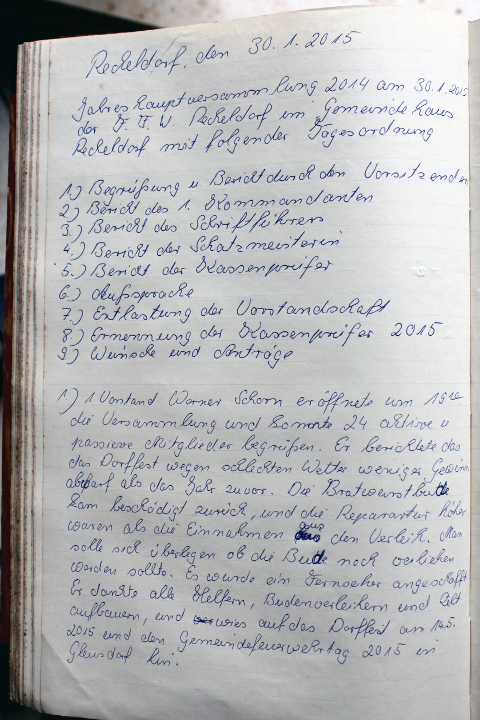 Reckeldorf, den 30.1.2015
Jahreshauptversammlung 2014 am 30.1.2015
der F.F.W. Reckeldorf im Gemeindehaus
Reckeldorf mit folgender Tagesordnung
1.) Begrüßung u. Bericht durch den Vorsitzenden
2.) Bericht des 1. Kommandanten
3.) Bericht des Schriftführers
4.) Bericht der Schatzmeisterin
5.) Bericht der Kassenprüfer
6.) Aussprache
7.) Entlastung der Vorstandschaft
8.) Ernennung der Kassenprüfer 2015
9.) Wünsche und Anträge
1.) 1 Vorstand Werner Schorn eröffnete um
die Versammlung und konnte 24 aktive u
passieve Mitglieder begrüßen. Er berichtete das
das Dorffest wegen schlechten Wetter weniger Gewinn
abwarf als das Jahr zuvor. Die Bratwurstbude
kam beschädigt zurück, und die Reparartur höher
waren als die Einnahmen aus den Verleih. Man
solle sich überlegen ob die Bude noch verliehen
werden sollte. Es wurde ein Fernseher angeschafft
Er dankte alle Helfern, Budenverleihern und Zelt
aufbauern, und wies auf das Dorffest am 14.5.
2015 und den Gemeindefeuerwehrtag 2015 in
Gleusdorf hin.